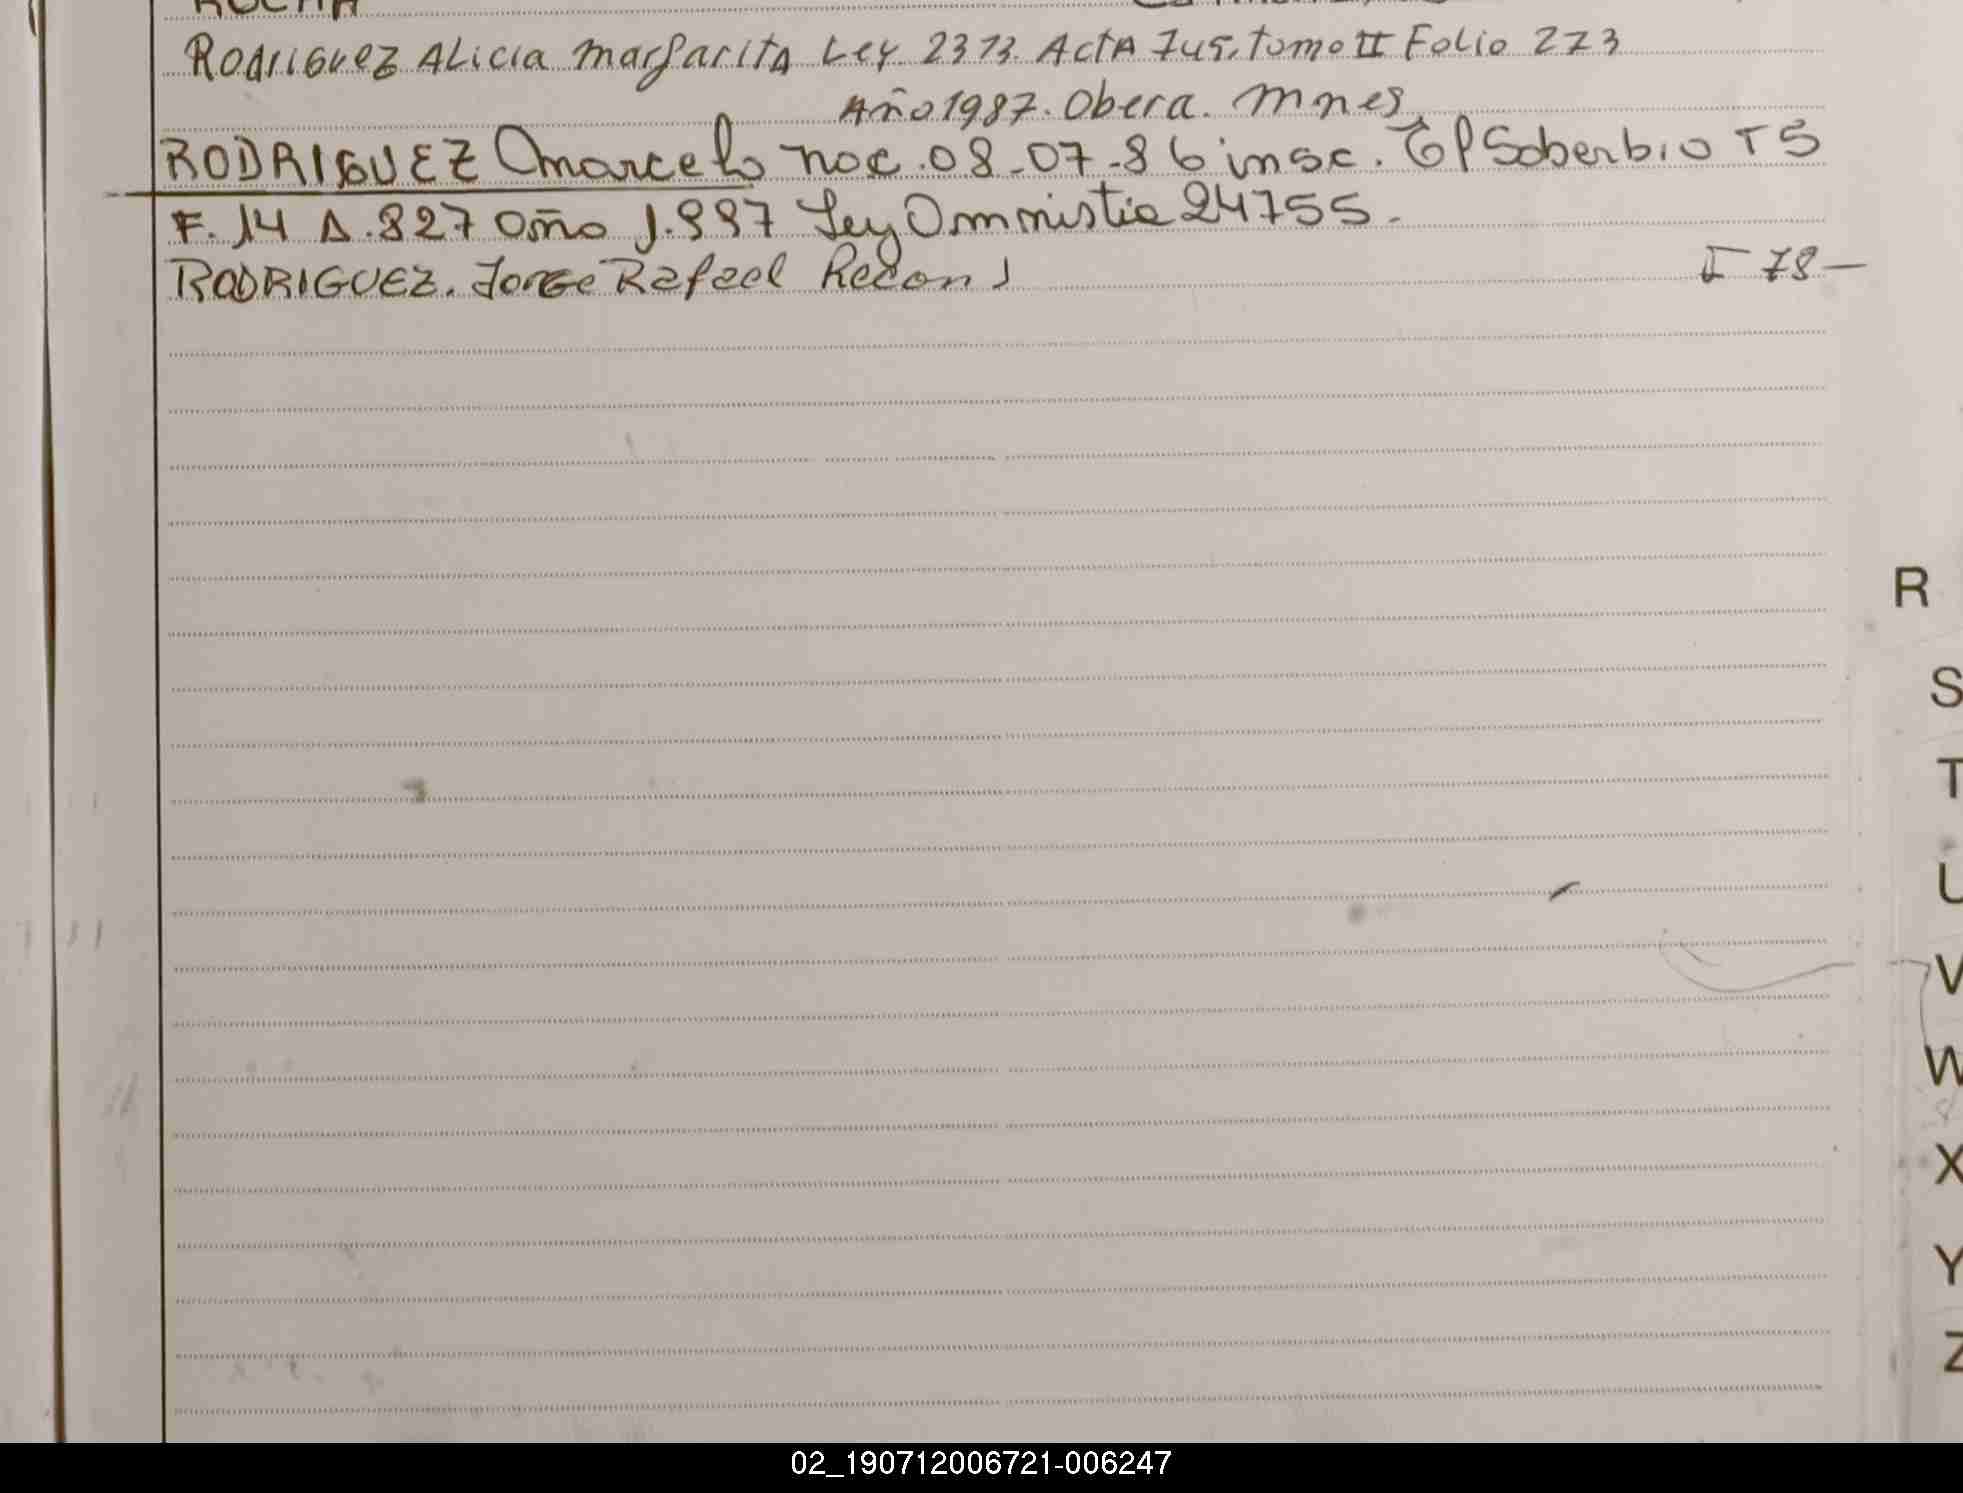 ROCHA
Rodriguez Alicia Margarita Ley. 2373. Acta 745. tomo II Folio 273
Año 1987. Obera. Mnes
RODRIGUEZ Omarcelo noc. 08-07-86 insc. El Soberbio T5
F. 14 A. 827 Año 1.997 Ley Ommistia 24755.
RODRIGUEZ. Jorge Rafael Recon
I 78-
R
S
T
U
V
W
X
Y
Z
02_190712006721-006247